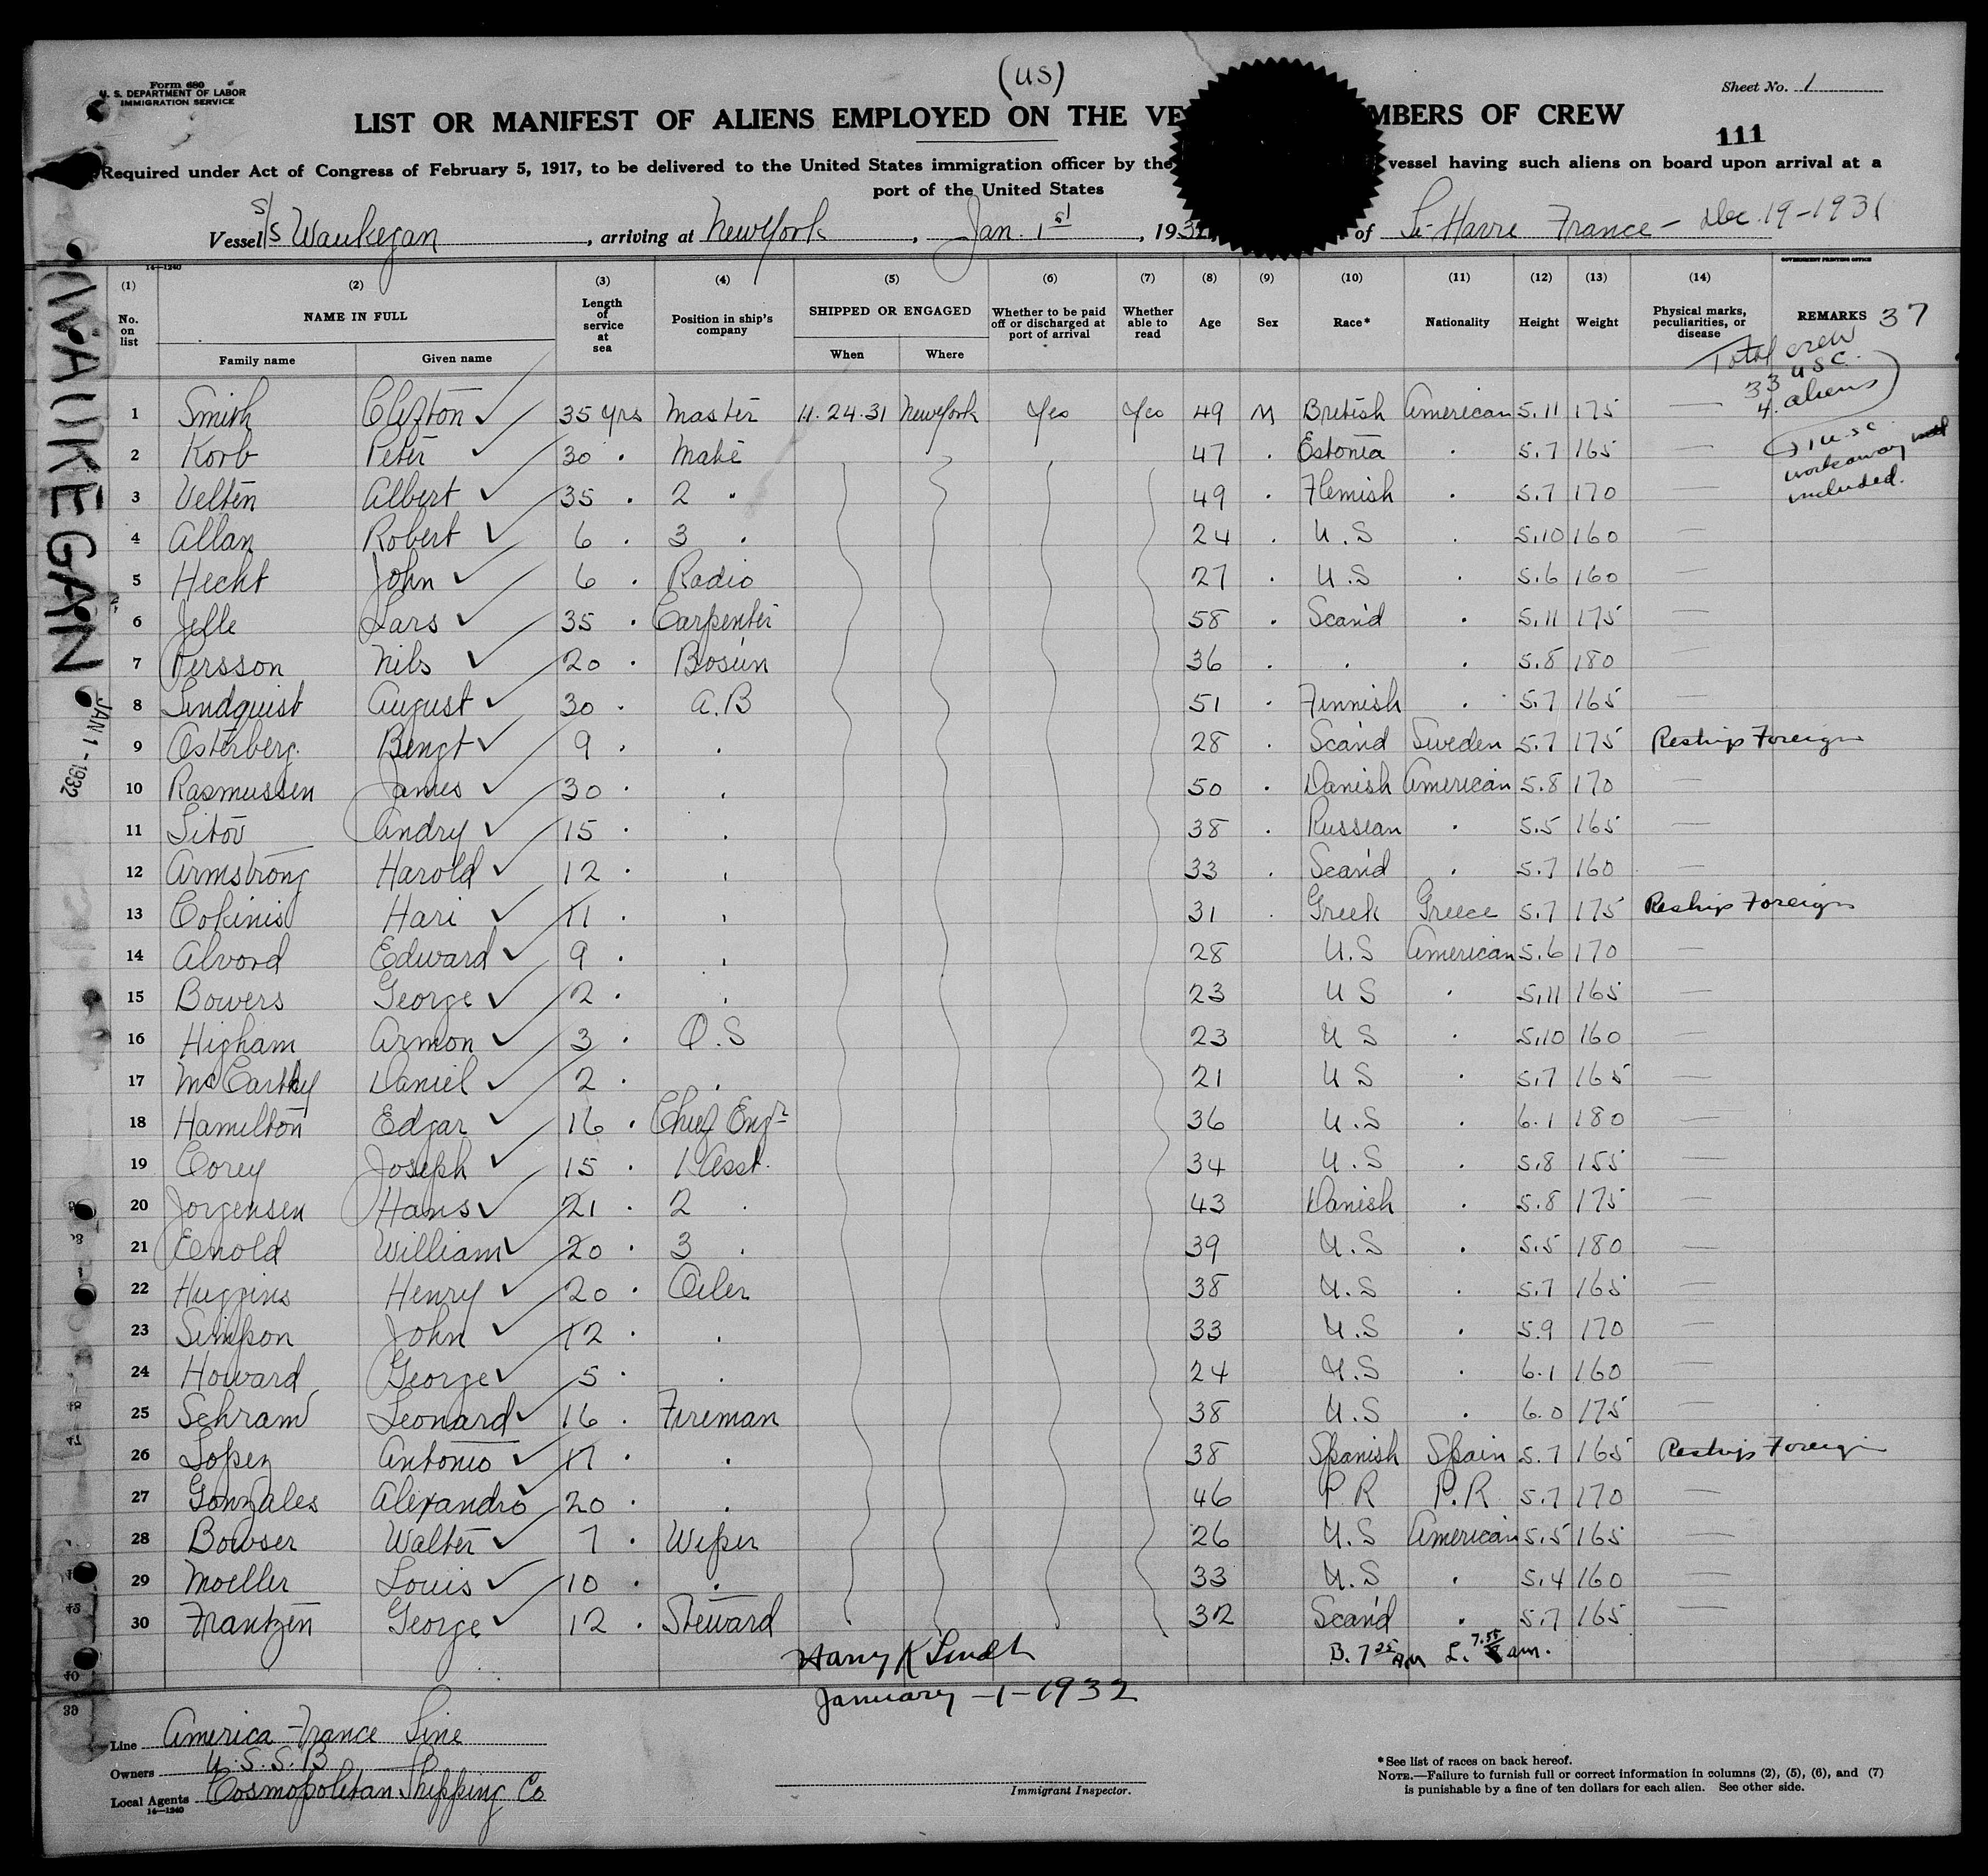 (US)
Form 680
U. S. DEPARTMENT OF LABOR
IMMIGRATION SERVICE
Sheet No. 1
LIST OR MANIFEST OF ALIENS EMPLOYED ON THE VE MBERS OF CREW
111
Required under Act of Congress of February 5, 1917, to be delivered to the United States immigration officer by the vessel having such aliens on board upon arrival at a
port of the United States
Vessel S/S Waukegan, arriving at New York, Jan. 1st, 1932 of Le Havre France - Dec. 19-1931
14—1240
GOVERNMENT PRINTING OFFICE
(1) (2) (3) (4) (5) (6) (7) (8) (9) (10) (11) (12) (13) (14)
No. on list NAME IN FULL Length of service at sea Position in ship's company SHIPPED OR ENGAGED Whether to be paid off or discharged at port of arrival Whether able to read Age Sex Race* Nationality Height Weight Physical marks, peculiarities, or disease REMARKS 37
Family name Given name When Where
Total crew
33 USC.
4. aliens
1 U.S.C.
workaway
included.
1 Smith Clifton ✓ 35 yrs Master 11.24.31 New York Yes Yes 49 M British American 5.11 175 —
2 Korb Peter ✓ 30 . Mate 47 . Estonia . 5.7 165 —
3 Velten Albert ✓ 35 . 2 " 49 . Flemish . 5.7 170 —
4 Allan Robert ✓ 6 . 3 . 24 . U.S . 5.10 160 —
5 Hecht John ✓ 6 . Radio 27 . U.S . 5.6 160 —
6 Jelle Lars ✓ 35 . Carpenter 58 . Scand . 5.11 175 —
7 Persson Nils ✓ 20 . Bosun 36 . . . 5.8 180 —
8 Lindquist August ✓ 30 . A.B 51 . Finnish . 5.7 165 —
9 Osterberg Bengt ✓ 9 . . 28 . Scand Sweden 5.7 175 Reship Foreign
10 Rasmussen James ✓ 30 . . 50 . Danish American 5.8 170 —
11 Sitov Andry ✓ 15 . . 38 . Russian . 5.5 165 —
12 Armstrong Harold ✓ 12 . . 33 . Scand . 5.7 160 —
13 Cokinis Hari ✓ 11 . . 31 . Greek Greece 5.7 175 Reship Foreign
14 Alvord Edward ✓ 9 . . 28 U.S American 5.6 170 —
15 Bowers George ✓ 2 . . 23 U S . 5.11 165 —
16 Higham Armon ✓ 3 . O.S 23 U S . 5.10 160 —
17 McCarthy Daniel ✓ 2 . . 21 U S . 5.7 165 —
18 Hamilton Edgar ✓ 16 . Chief Engr 36 U.S . 6.1 180 —
19 Corey Joseph ✓ 15 . 1 Asst. 34 U.S . 5.8 155 —
20 Jorgensen Hans ✓ 21 . 2 . 43 Danish . 5.8 175 —
21 Eenold William ✓ 20 . 3 . 39 U.S . 5.5 180 —
22 Huggins Henry ✓ 20 . Oiler 38 U.S . 5.7 165 —
23 Simpson John ✓ 12 . . 33 U.S . 5.9 170 —
24 Howard George ✓ 5 . . 24 U.S . 6.1 160 —
25 Schram Leonard ✓ 16 . Fireman 38 U.S . 6.0 175 —
26 Lopez Antonio ✓ 17 . . 38 Spanish Spain 5.7 165 Reship Foreign
27 Gonzales Alexandro ✓ 20 . . 46 P.R P.R. 5.7 170 —
28 Bowser Walter ✓ 7 . Wiper 26 U.S American 5.5 165 —
29 Moeller Louis ✓ 10 . . 33 U.S . 5.4 160 —
30 Frantzen George ✓ 12 . Steward 32 Scand . 5.7 165 —
Harry K Lindt B. 7 25 AM L. 7.55 am.
January -1-1932
WAUKEGAN
JAN 1 - 1932
Line America France Line
Owners U.S.S.B
Local Agents Cosmopolitan Shipping Co
14—1240
Immigrant Inspector.
*See list of races on back hereof.
NOTE.—Failure to furnish full or correct information in columns (2), (5), (6), and (7)
is punishable by a fine of ten dollars for each alien. See other side.